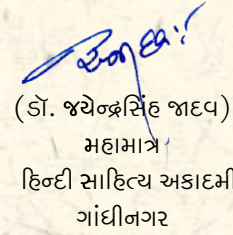 (ડૉ. જયેન્દ્રસિંહ જાદવ)
મહામાત્ર
હિન્દી સાહિત્ય અકાદમી
ગાંધીનગર